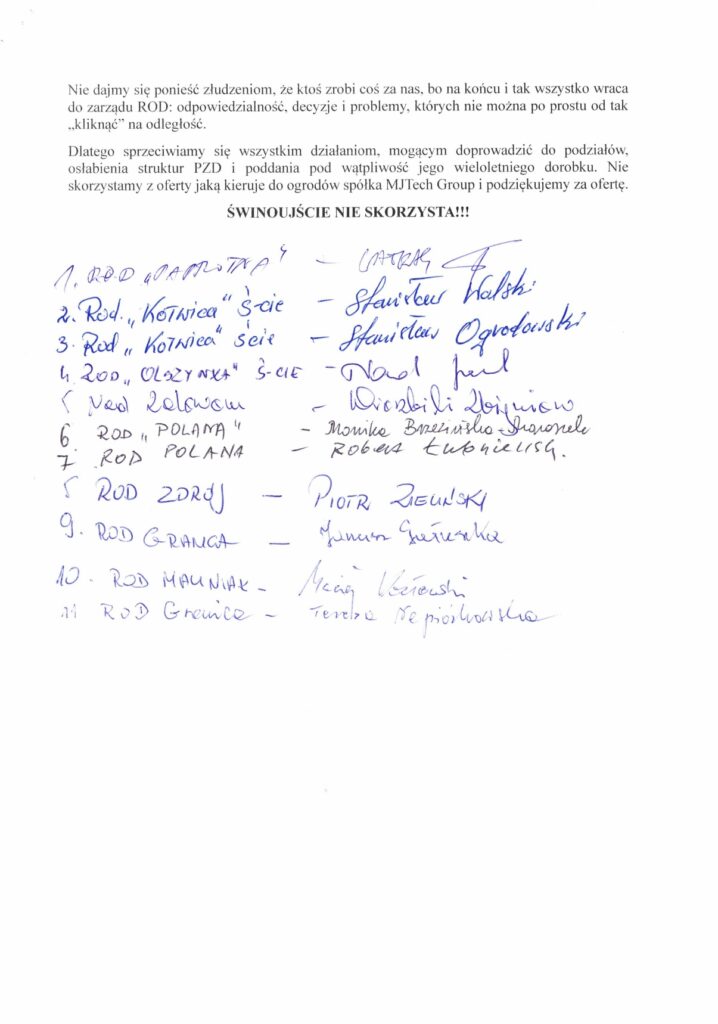 Nie dajmy się ponieść złudzeniom, że ktoś zrobi coś za nas, bo na końcu i tak wszystko wraca
do zarządu ROD: odpowiedzialność, decyzje i problemy, których nie można po prostu od tak
„kliknąć” na odległość.
Dlatego sprzeciwiamy się wszystkim działaniom, mogącym doprowadzić do podziałów,
osłabienia struktur PZD i poddania pod wątpliwość jego wieloletniego dorobku. Nie
skorzystamy z oferty jaką kieruje do ogrodów spółka MJTech Group i podziękujemy za ofertę.
ŚWINOUJŚCIE NIE SKORZYSTA!!!
1. ROD „PAPROTKA” –
2. Rod. „Kotwica” Ś-cie – Stanisław Walski
3. Rod „Kotwica” Ście – Stanisław Ogrodowski
4 ROD „OLSZYNKA” Ś-CIE –
5 Nad Zalewem – Zbigniew
6 ROD „POLANA” – Monika Brzezińska-
7 ROD POLANA – Robert
8 ROD ZDRÓJ – PIOTR ZIELIŃSKI
9. ROD GRANICA – Janusz
10. ROD MAUNIAK – Maciej
11 ROD Granica – Teresa Napiórkowska